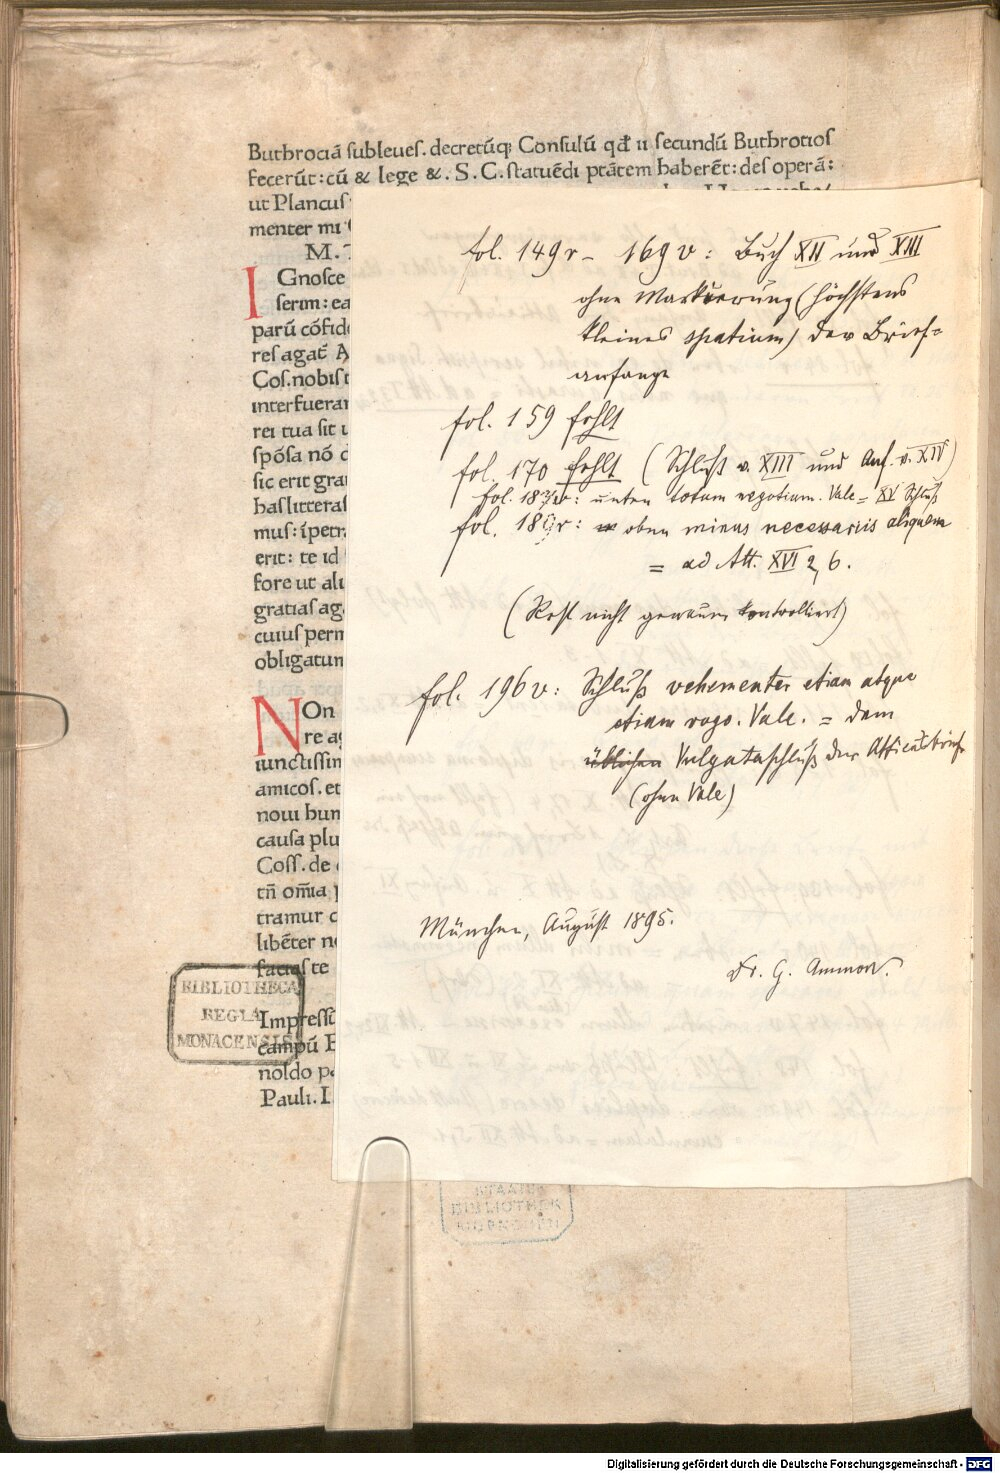 Buthrociã subleues. decretũq; Consulũ qđ ii secundũ Buthrotios
fecerũt: cũ & lege &. S. C. statuẽdi ptãtem haberẽt: des operã:
ut Plancus
menter mi
M. T
IGnosce
serim: ea
parũ cõfide
res agat̃ A
Cos. nobis
interfuerar
rei tua sit
spõsa nõ
sic erit gra
has litteras
mus: ĩpetr
erit: te id
fore ut ali
gratias ag
cuius perm
obligatum
NOn
re ag
iunctissim
amicos. et
noui hum
causa plu
Coss. de
tñ om̃ia
tramur
libẽter n
facias te
Impressũ
campũ
noldo pa
Pauli. I
BIBLIOTHECA
REGIA
MONACENSIS
fol. 149r - 169v: Buch XII und XIII
ohne Markierung (höchstens
kleines spatium) der Brief-
anfänge
fol. 159 fehlt
fol. 170 fehlt (Schluß v. XIII und Anf. v. XIV)
unten totum negotium. Vale = XV Schluß
oben minus necessariis aliquem
= ad Att. XVI 2, 6.
(Rest nicht genauer kontrolliert)
fol. 196v: Schluß vehementer etiam atque
etiam rogo. Vale. = dem
üblichen Vulgataschluß der Atticusbriefe
(ohne Vale)
München, August 1895.
Dr. G. Ammon.
STAATS
BIBLIOTHEK
MUENCHEN
Digitalisierung gefördert durch die Deutsche Forschungsgemeinschaft - DFG